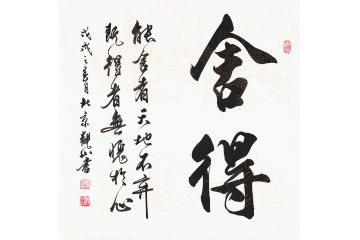 舍得
能舍者天地不弃
既得者無愧於心
戊戌之春月北京観山書